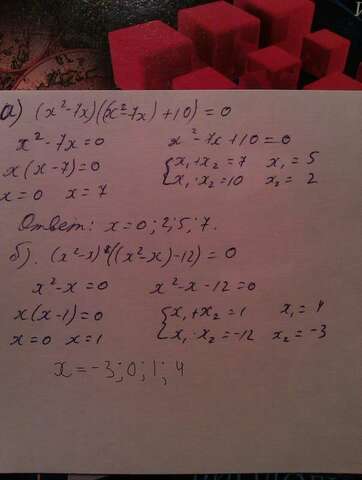 а) (x²-7x)((x²-7x)+10)=0
x²-7x=0 x²-7x+10=0
x(x-7)=0 { x₁+x₂=7 x₁=5
x=0 x=7 x₁·x₂=10 x₂=2
Ответ: x=0;2;5;7.
б). (x²-x)((x²-x)-12)=0
x²-x=0 x²-x-12=0
x(x-1)=0 { x₁+x₂=1 x₁=4
x=0 x=1 x₁·x₂=-12 x₂=-3
x=-3;0;1;4